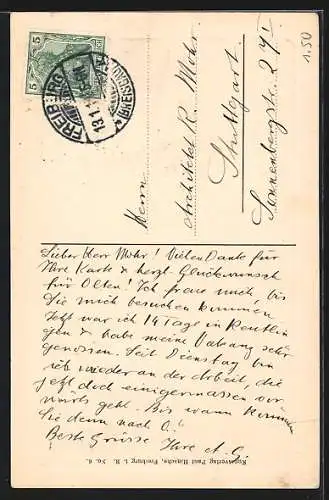 1.50
5 5
FREIBURG
(BREISGAU)
13.1.
Herrn
Architekt R. Mohr
Stuttgart.
Sonnenbergstr. 27
Lieber Herr Mohr! Vielen Dank für
Ihre Karte & herzl. Glückwunsch
für Olten! Ich freue mich, bis
Sie mich besuchen kommen.
Jetzt war ich 14 Tage in Reutlin
gen & habe meine
genossen. Seit Dienstag bin
ich wieder an der Arbeit, die
jetzt doch einigermassen vor
wärts geht. Bis wann kommen
Sie denn nach O.?
Beste Grüsse Ihre A. G.
Kunstverlag Paul Hinsche, Freiburg i. B. No. 6.